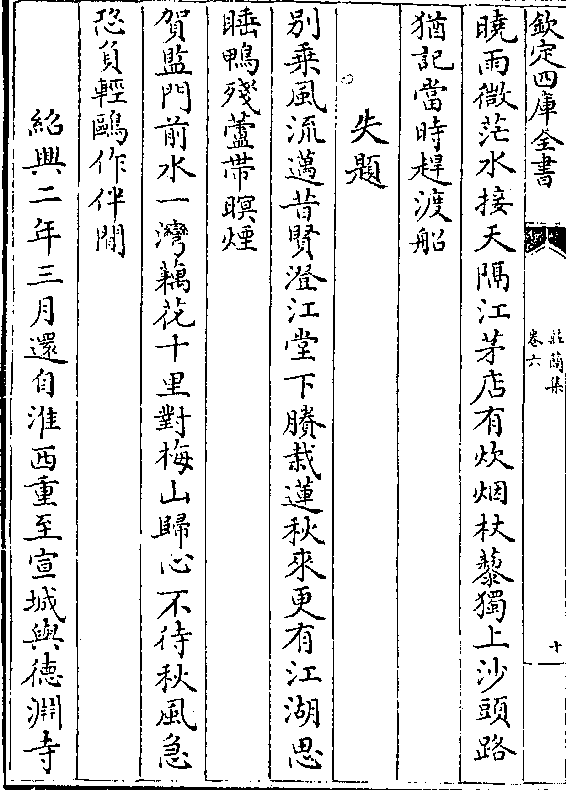 欽定四庫全書
莊簡集
卷六
十
曉雨微茫水接天隔江茅店有炊烟杖藜獨上沙頭路
猶記當時趕渡船
失題
別乗風流邁昔賢澄江堂下賸栽蓮秋來更有江湖思
睡鴨殘蘆帶暝煙
賀監門前水一灣藕花十里對梅山歸心不待秋風急
恐負輕鷗作伴閒
紹興二年三月還自淮西重至宣城與德淵寺